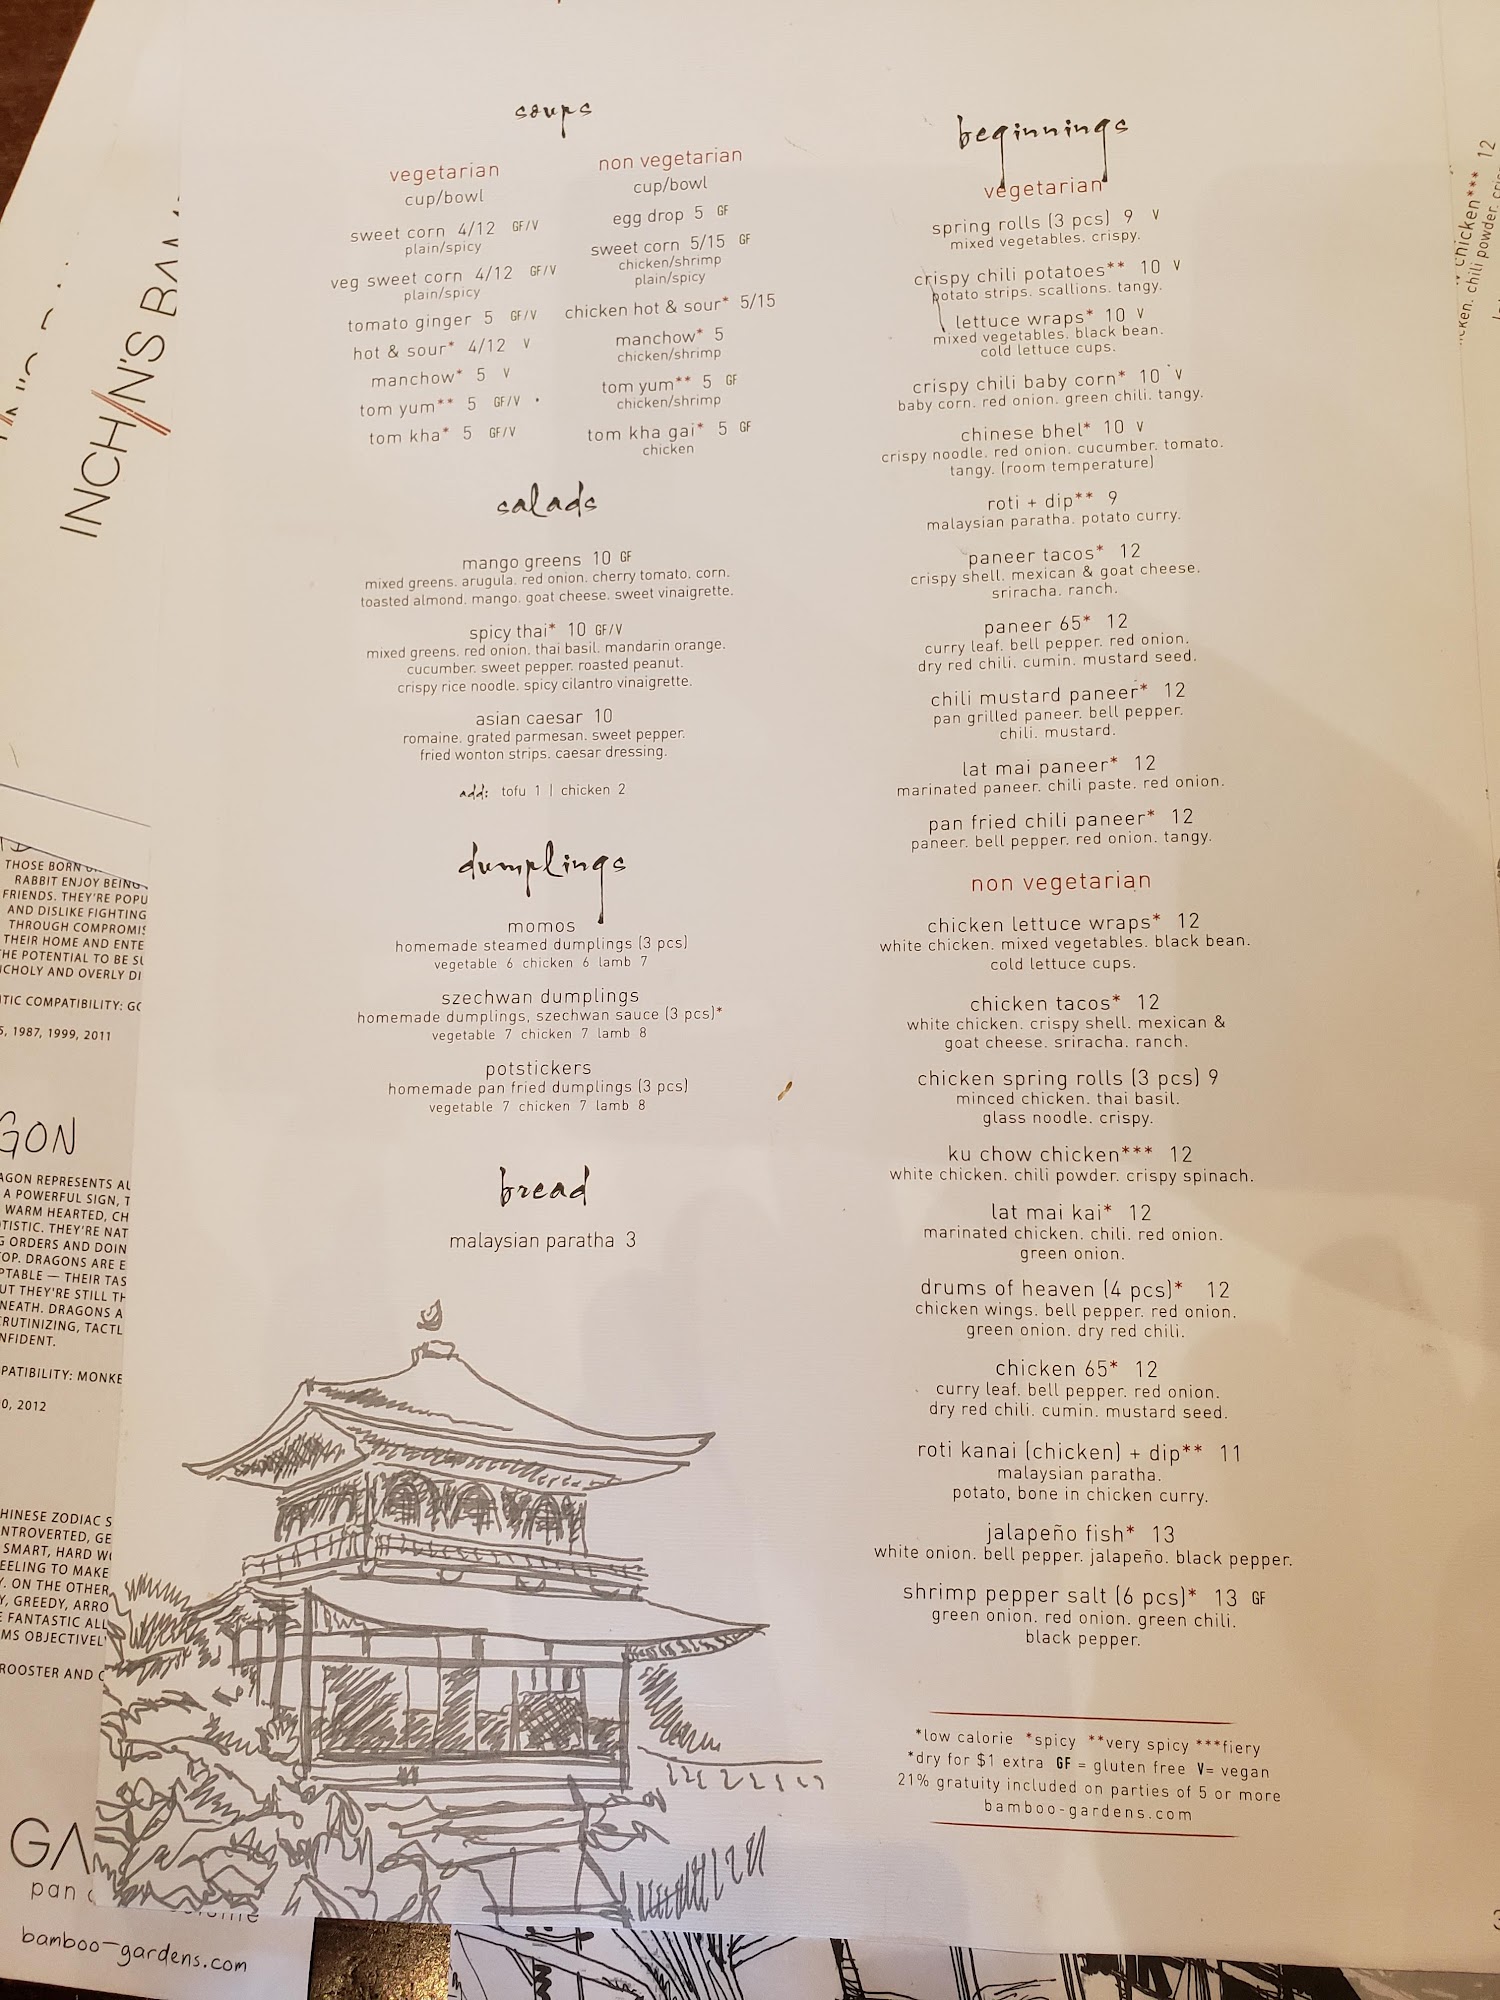 soups
vegetarian
cup/bowl
sweet corn 4/12 GF/V
plain/spicy
veg sweet corn 4/12 GF/V
plain/spicy
tomato ginger 5 GF/V
hot & sour* 4/12 V
manchow* 5 V
tom yum** 5 GF/V
tom kha* 5 GF/V
non vegetarian
cup/bowl
egg drop 5 GF
sweet corn 5/15 GF
chicken/shrimp
plain/spicy
chicken hot & sour* 5/15
manchow* 5
chicken/shrimp
tom yum** 5 GF
chicken/shrimp
tom kha gai* 5 GF
chicken
salads
mango greens 10 GF
mixed greens. arugula. red onion. cherry tomato. corn.
toasted almond. mango. goat cheese. sweet vinaigrette.
spicy thai* 10 GF/V
mixed greens. red onion. thai basil. mandarin orange.
cucumber. sweet pepper. roasted peanut.
crispy rice noodle. spicy cilantro vinaigrette.
asian caesar 10
romaine. grated parmesan. sweet pepper.
fried wonton strips. caesar dressing.
add: tofu 1 | chicken 2
dumplings
momos
homemade steamed dumplings (3 pcs)
vegetable 6 chicken 6 lamb 7
szechwan dumplings
homemade dumplings, szechwan sauce (3 pcs)*
vegetable 7 chicken 7 lamb 8
potstickers
homemade pan fried dumplings (3 pcs)
vegetable 7 chicken 7 lamb 8
bread
malaysian paratha 3
beginnings
vegetarian
spring rolls (3 pcs) 9 V
mixed vegetables. crispy.
crispy chili potatoes** 10 V
potato strips. scallions. tangy.
lettuce wraps* 10 V
mixed vegetables. black bean.
cold lettuce cups.
crispy chili baby corn* 10 V
baby corn. red onion. green chili. tangy.
chinese bhel* 10 V
crispy noodle. red onion. cucumber. tomato.
tangy. (room temperature)
roti + dip** 9
malaysian paratha. potato curry.
paneer tacos* 12
crispy shell. mexican & goat cheese.
sriracha. ranch.
paneer 65* 12
curry leaf. bell pepper. red onion.
dry red chili. cumin. mustard seed.
chili mustard paneer* 12
pan grilled paneer. bell pepper.
chili. mustard.
lat mai paneer* 12
marinated paneer. chili paste. red onion.
pan fried chili paneer* 12
paneer. bell pepper. red onion. tangy.
non vegetarian
chicken lettuce wraps* 12
white chicken. mixed vegetables. black bean.
cold lettuce cups.
chicken tacos* 12
white chicken. crispy shell. mexican &
goat cheese. sriracha. ranch.
chicken spring rolls (3 pcs) 9
minced chicken. thai basil.
glass noodle. crispy.
ku chow chicken*** 12
white chicken. chili powder. crispy spinach.
lat mai kai* 12
marinated chicken. chili. red onion.
green onion.
drums of heaven (4 pcs)* 12
chicken wings. bell pepper. red onion.
green onion. dry red chili.
chicken 65* 12
curry leaf. bell pepper. red onion.
dry red chili. cumin. mustard seed.
roti kanai (chicken) + dip** 11
malaysian paratha.
potato, bone in chicken curry.
jalapeño fish* 13
white onion. bell pepper. jalapeño. black pepper.
shrimp pepper salt (6 pcs)* 13 GF
green onion. red onion. green chili.
black pepper.
*low calorie *spicy **very spicy ***fiery
*dry for $1 extra GF = gluten free V= vegan
21% gratuity included on parties of 5 or more
bamboo-gardens.com
INCH/N'S
THOSE BORN
RABBIT ENJOY BEING
FRIENDS. THEY'RE POPU
AND DISLIKE FIGHTING
THROUGH COMPROMIS
THEIR HOME AND ENTE
THE POTENTIAL TO BE SU
CHOLY AND OVERLY DI
TIC COMPATIBILITY: GO
, 1987, 1999, 2011
GON
AGON REPRESENTS AU
A POWERFUL SIGN, T
WARM HEARTED, CH
TISTIC. THEY'RE NAT
G ORDERS AND DOIN
OP. DRAGONS ARE E
PTABLE — THEIR TAS
UT THEY'RE STILL TH
NEATH. DRAGONS A
RUTINIZING, TACTL
NFIDENT.
PATIBILITY: MONKE
0, 2012
HINESE ZODIAC S
NTROVERTED, GE
SMART, HARD WO
EELING TO MAKE
. ON THE OTHER
Y, GREEDY, ARRO
E FANTASTIC ALL
MS OBJECTIVEL
ROOSTER AND
GA
pan
bamboo-gardens.com
chicken*** 12
chili powder.